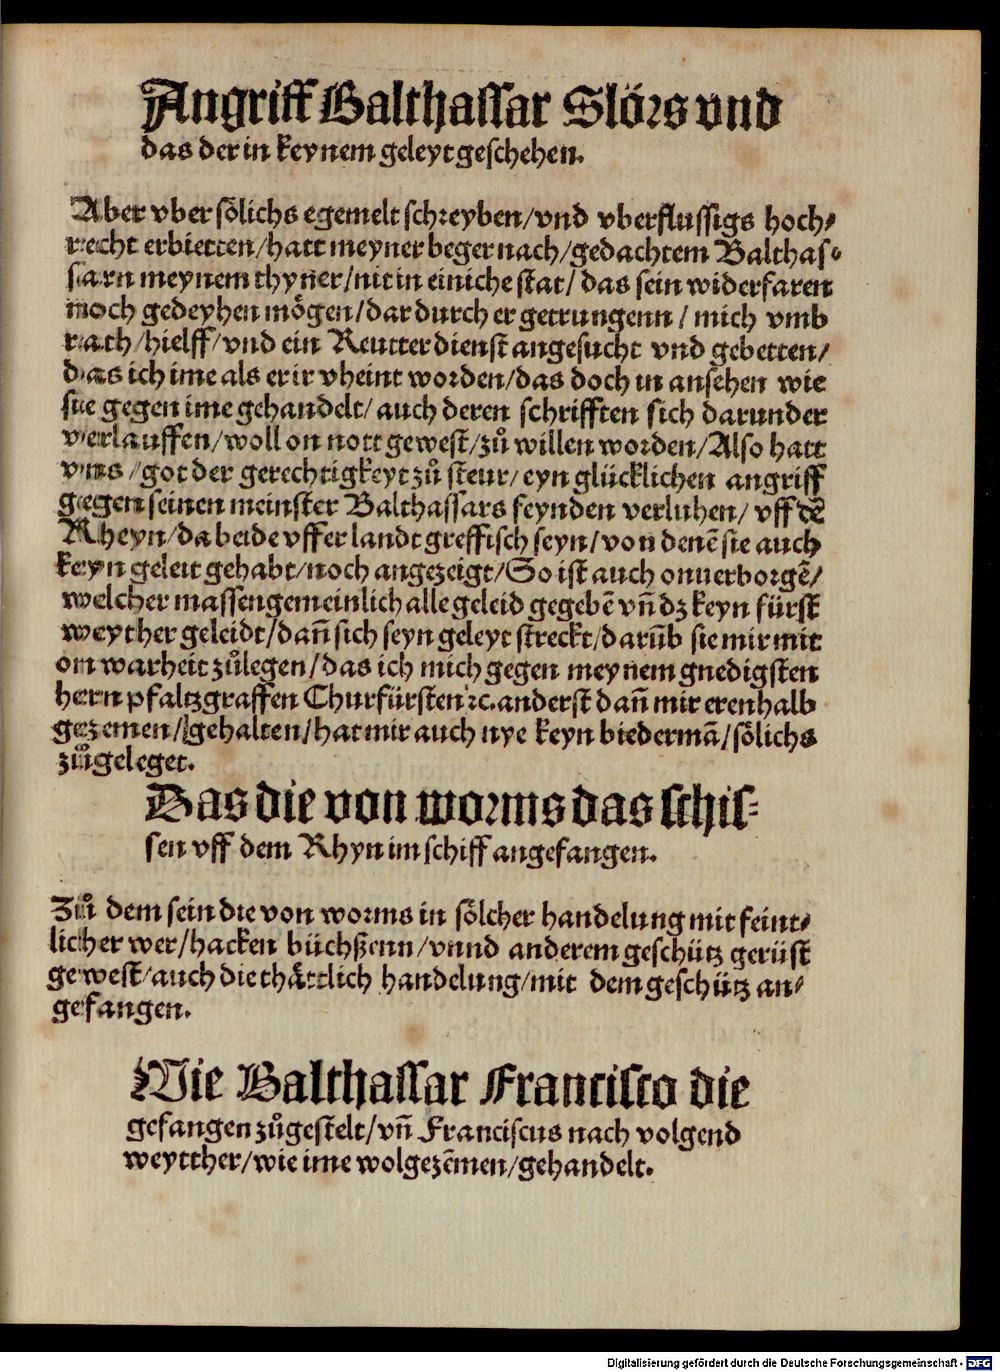 Angriff Balthassar Slörs vnd
das der in keynem geleyt geschehen.
Aber vber sölichs egemelt schreyben/vnd vberflussigs hoch⸗
recht erbietten/hatt meyner beger nach/gedachtem Balthas⸗
sarn meynem thyner/nit in einiche stat/das sein widerfaren
noch gedeyhen mögen/dar durch er getrungenn/mich vmb
rath/hielff/vnd ein Reutter dienst angesucht vnd gebetten/
das ich ime als er ir vheint worden/das doch in ansehen wie
sie gegen ime gehandelt/auch deren schrifften sich darunder
verlauffen/woll on nott gewest/zů willen worden/Also hatt
vns/got der gerechtigkeyt zů steur/eyn glücklichen angriff
gegen seinen meinster Balthassars feynden verluhen/vff dē
Rheyn/da beide vffer landtgreffisch seyn/von denē sie auch
keyn geleit gehabt/noch angezeigt/So ist auch onuerborgē/
welcher massen gemeinlich alle geleid gegebē vñ dz keyn fürst
weyther geleidt/dañ sich seyn geleyt streckt/darūb sie mir mit
on warheit zůlegen/das ich mich gegen meynem gnedigsten
hern pfaltzgraffen Churfürsten ꝛc. anderst dañ mir erenhalb
gezemen/gehalten/hat mir auch nye keyn biedermā/sölichs
zůgeleget.
Das die von worms das schis⸗
sen vff dem Rhyn im schiff angefangen.
Zů dem sein die von worms in sölcher handelung mit feint⸗
licher wer/hacken büchßenn/vnnd anderem geschütz gerüst
gewest/auch die thättlich handelung/mit dem geschütz an⸗
gefangen.
Wie Balthassar Francisco die
gefangen zůgestelt/vñ Franciscus nach volgend
weytther/wie ime wolgezēmen/gehandelt.
Digitalisierung gefördert durch die Deutsche Forschungsgemeinschaft - DFG